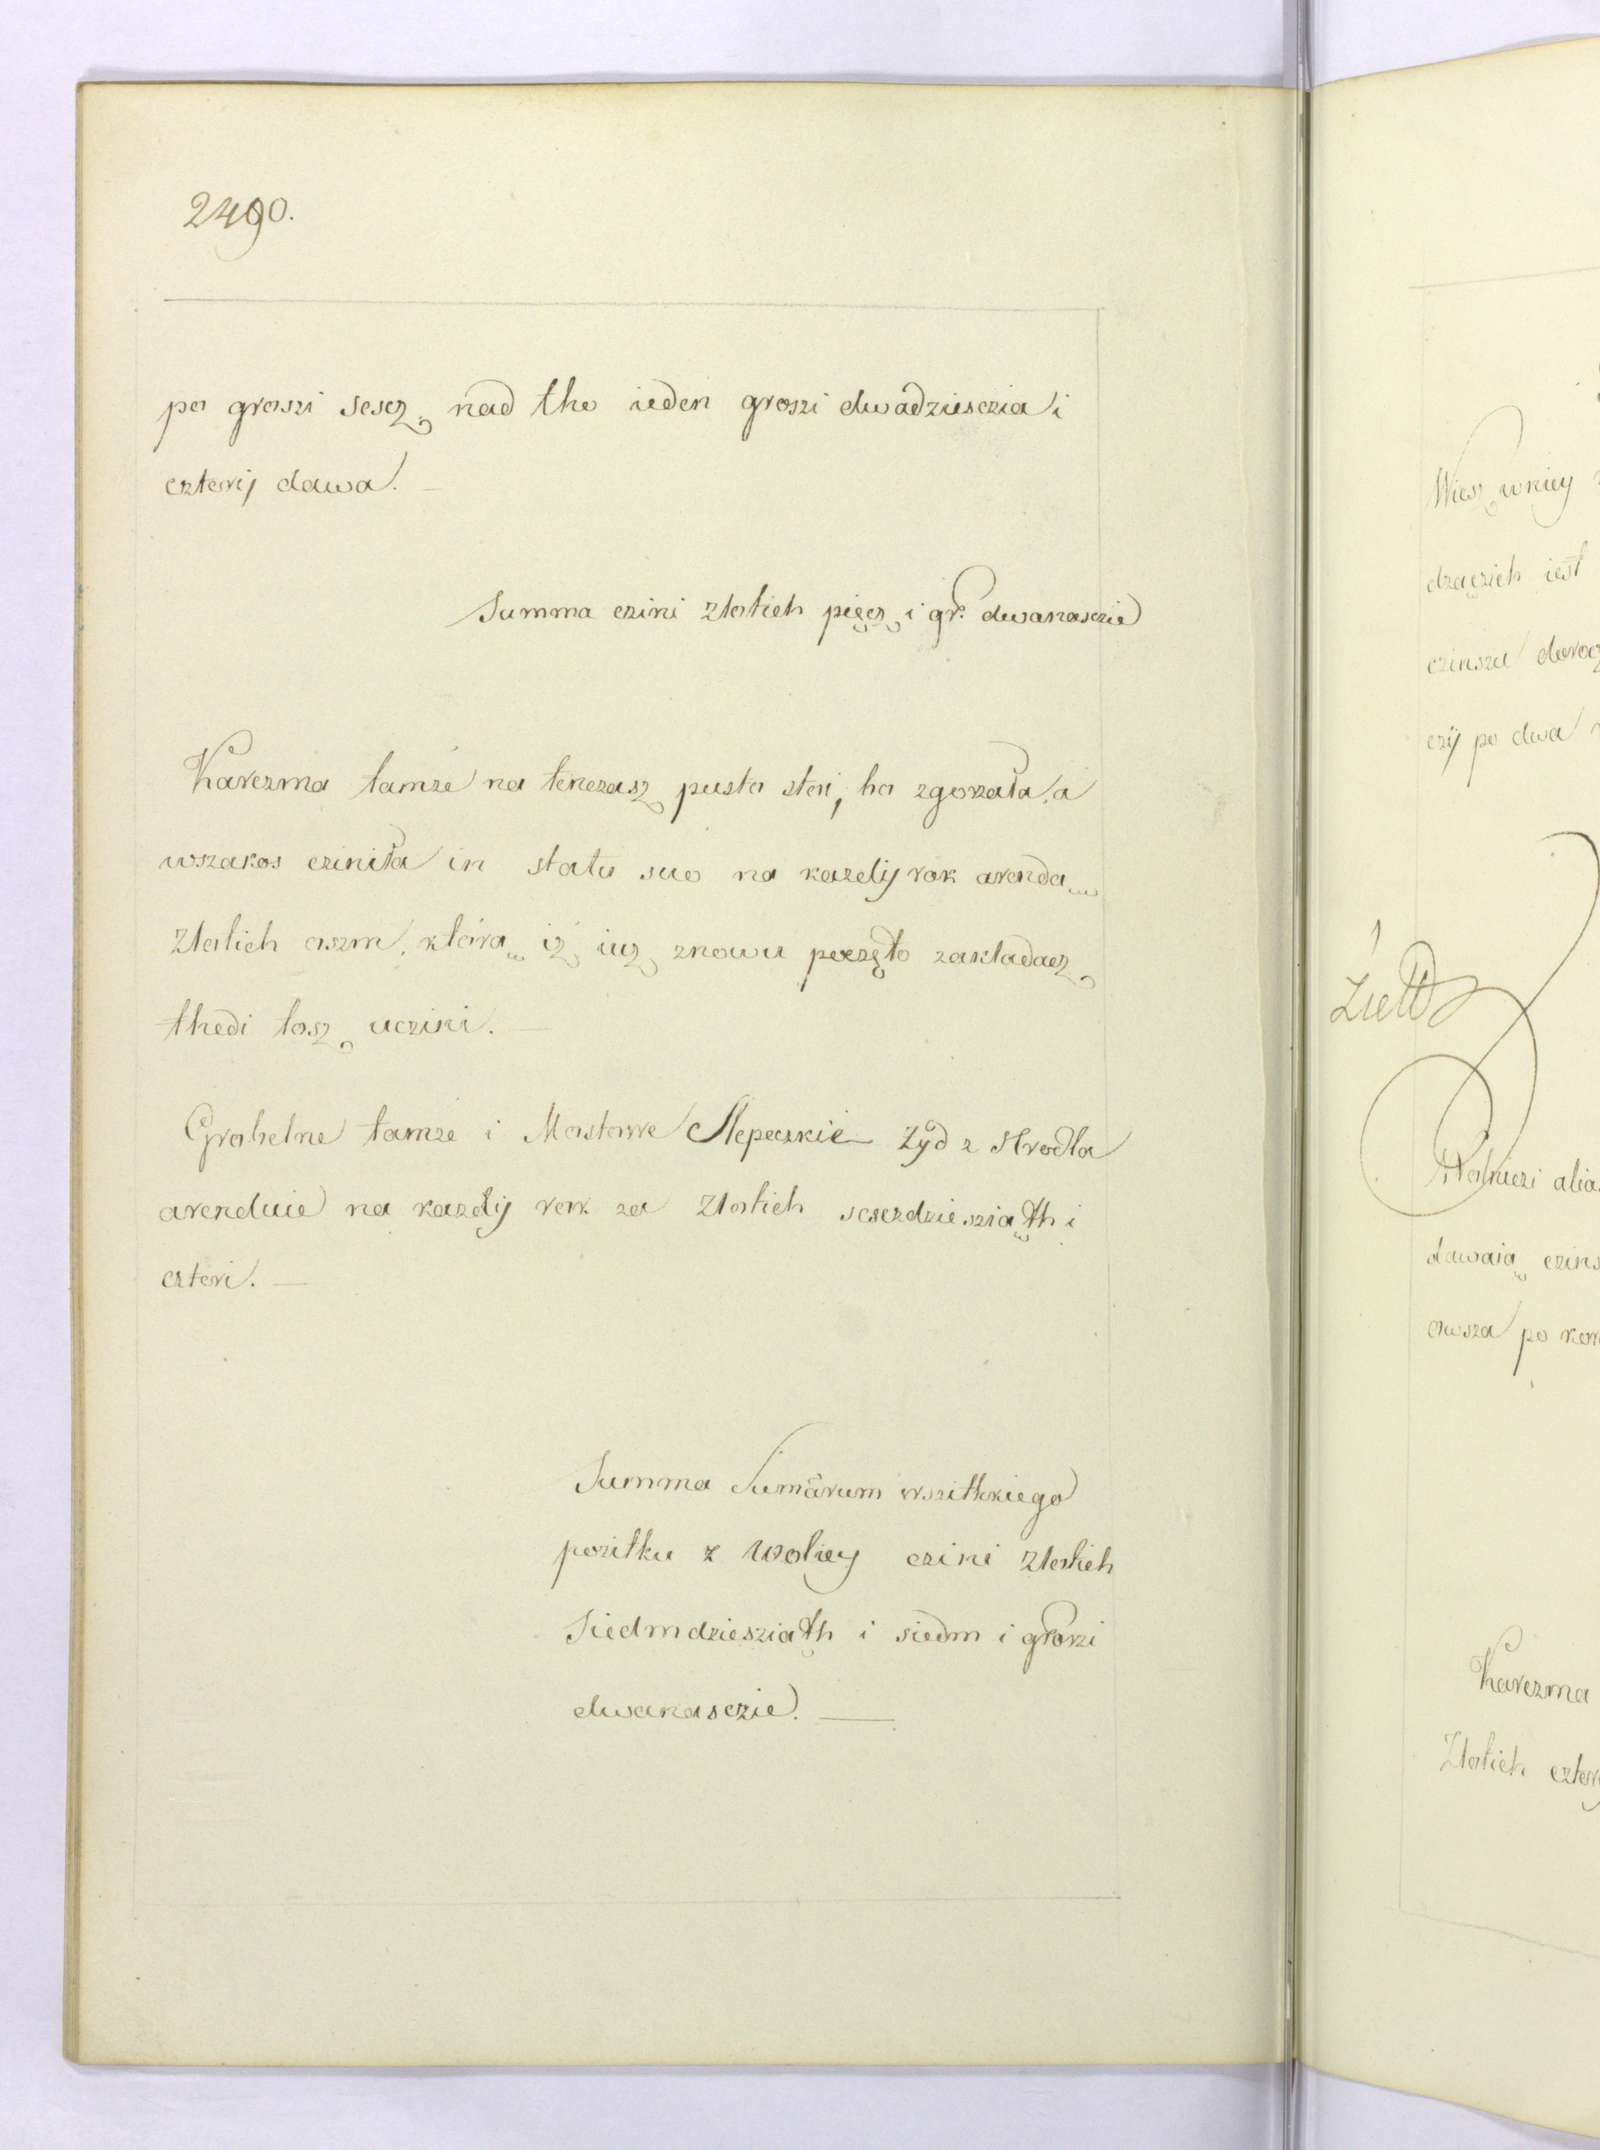 2490.
po groszi sescz, nad tho ieden groszi dwadziesczia i
czterij dawa. —
Summa czini złotich pięcz i gr. dwanasczie
Karczma tamże na tenczasz pusta stoi, bo zgorzała, a
wszakos cziniła in statu suo na kazdij rok arendą
złotich oszm, którą iż iuż znowu poczęto zakładacz,
thedi tosz uczini. —
Grobelne tamże i Mostowe Slepeczkie Żyd z Hrodła
arenduie na kazdij rok za złotich sesczdziesziąth i
czteri. —
Summa Sumarum wszitkiego
pozitku z Wolicy czini złotich
Siedmdziesziąth i siedm i groszi
dwanasczie. —
Wiesz wniey
drzączich iest
czinszu doroc
czÿ po dwa
Wolniczi alia
dawaią czins
owsza po
Karczma
Złotich czter